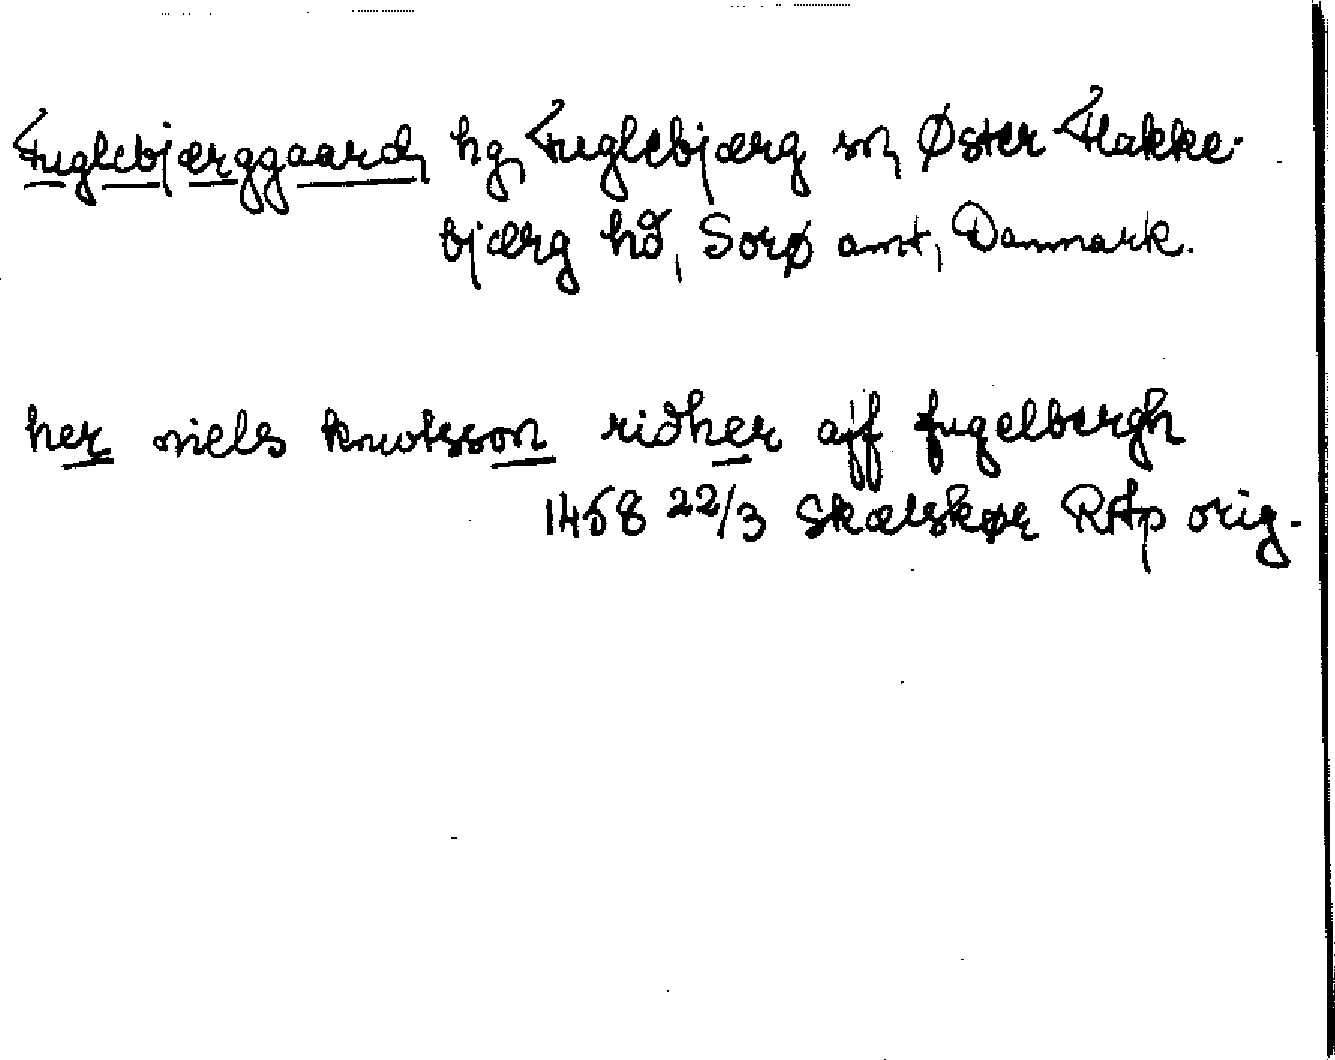 Fuglebjærggaard, hg, Fuglebjærg sn, Øster Flakke-
bjærg hd, Sorø amt, Danmark.
her niels knutsson ridher aff fugelbergh
1458 22/3 Skælskør RAp orig.